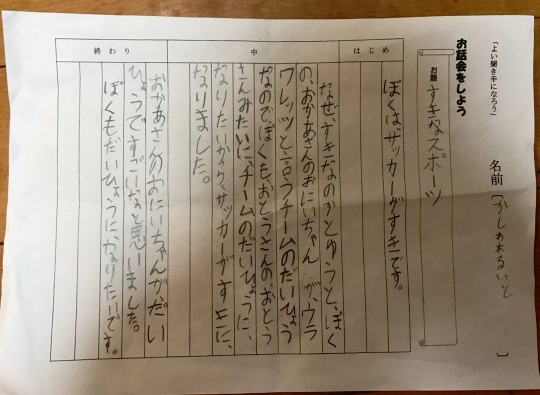 「よい聞き手になろう」
お話会をしよう
名前〔かしの木るいと〕
お題 すきなスポーツ
はじめ
ぼくは、サッカーがすきです。
中
なぜ、すきなのかとゆうと、ぼく
の、おかあさんのおにいちゃんが、ウラ
ワレッツと言うチームのだいひょう
なので、ぼくも、おとうさんの、おとう
さんみたいに、チームのだいひょうに、
なりたいから、サッカーがすきに、
なりました。
終わり
おかあさんのおにいちゃんがだい
ひょうですごいなと思いました。
ぼくもだいひょうに、なりたいです。